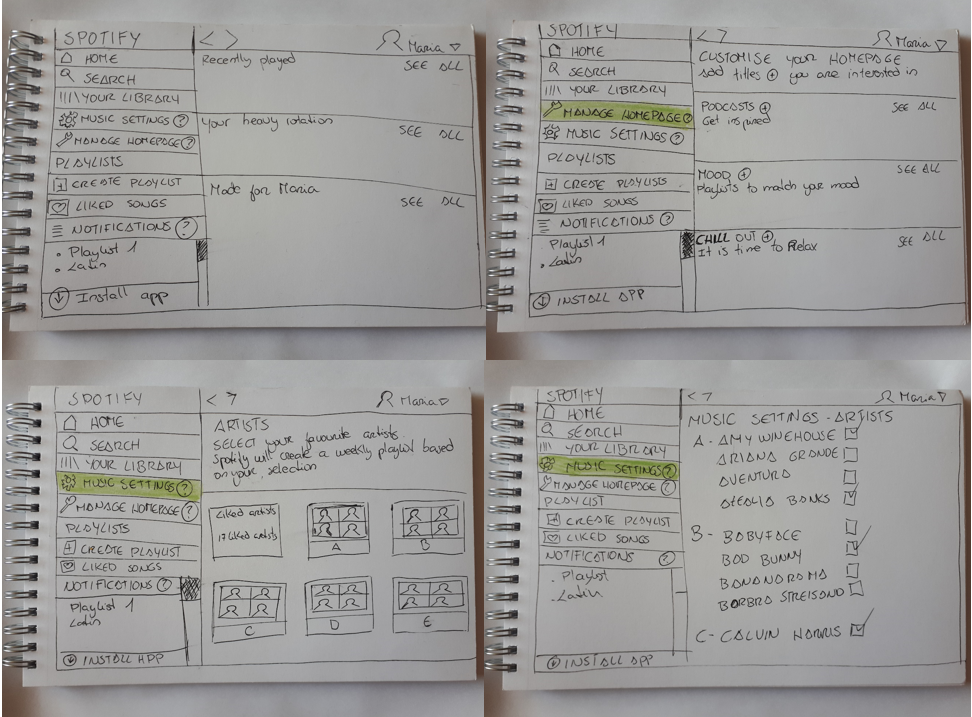 SPOTIFY
HOME
SEARCH
YOUR LIBRARY
MUSIC SETTINGS ?
MANAGE HOMEPAGE ?
PLAYLISTS
CREATE PLAYLIST
LIKED SONGS
NOTIFICATIONS ?
• Playlist 1
• Latin
Install app
< >
Maria
Recently played
SEE ALL
your heavy rotation
SEE ALL
Made for Maria
SEE ALL
SPOTIFY
HOME
SEARCH
YOUR LIBRARY
MANAGE HOMEPAGE ?
MUSIC SETTINGS ?
PLAYLISTS
CREATE PLAYLISTS
LIKED SONGS
NOTIFICATIONS ?
• Playlist 1
• Latin
INSTALL APP
< >
Maria
CUSTOMISE your HOMEPAGE
add titles + you are interested in
PODCASTS +
SEE ALL
Get inspired
MOOD +
SEE ALL
Playlists to match your mood
CHILL OUT +
SEE ALL
It is time to Relax
SPOTIFY
HOME
SEARCH
YOUR LIBRARY
MUSIC SETTINGS ?
MANAGE HOMEPAGE ?
PLAYLISTS
CREATE PLAYLIST
LIKED SONGS
NOTIFICATIONS ?
Playlist 1
Latin
INSTALL APP
< >
Maria
ARTISTS
SELECT your favourite artists.
Spotify will create a weekly playlist based
on your selection
Liked artists
17 liked artists
A
B
C
D
E
SPOTIFY
HOME
SEARCH
YOUR LIBRARY
MUSIC SETTINGS ?
MANAGE HOMEPAGE ?
PLAYLIST
CREATE PLAYLIST
LIKED SONGS
NOTIFICATIONS ?
. Playlist
. Latin
INSTALL APP
< >
Maria
MUSIC SETTINGS - ARTISTS
A - AMY WINEHOUSE
ARIANA GRANDE
AVENTURA
AZEALIA BANKS
B - BABYFACE
BAD BUNNY
BANANARAMA
BARBRA STREISAND
C - CALVIN HARRIS